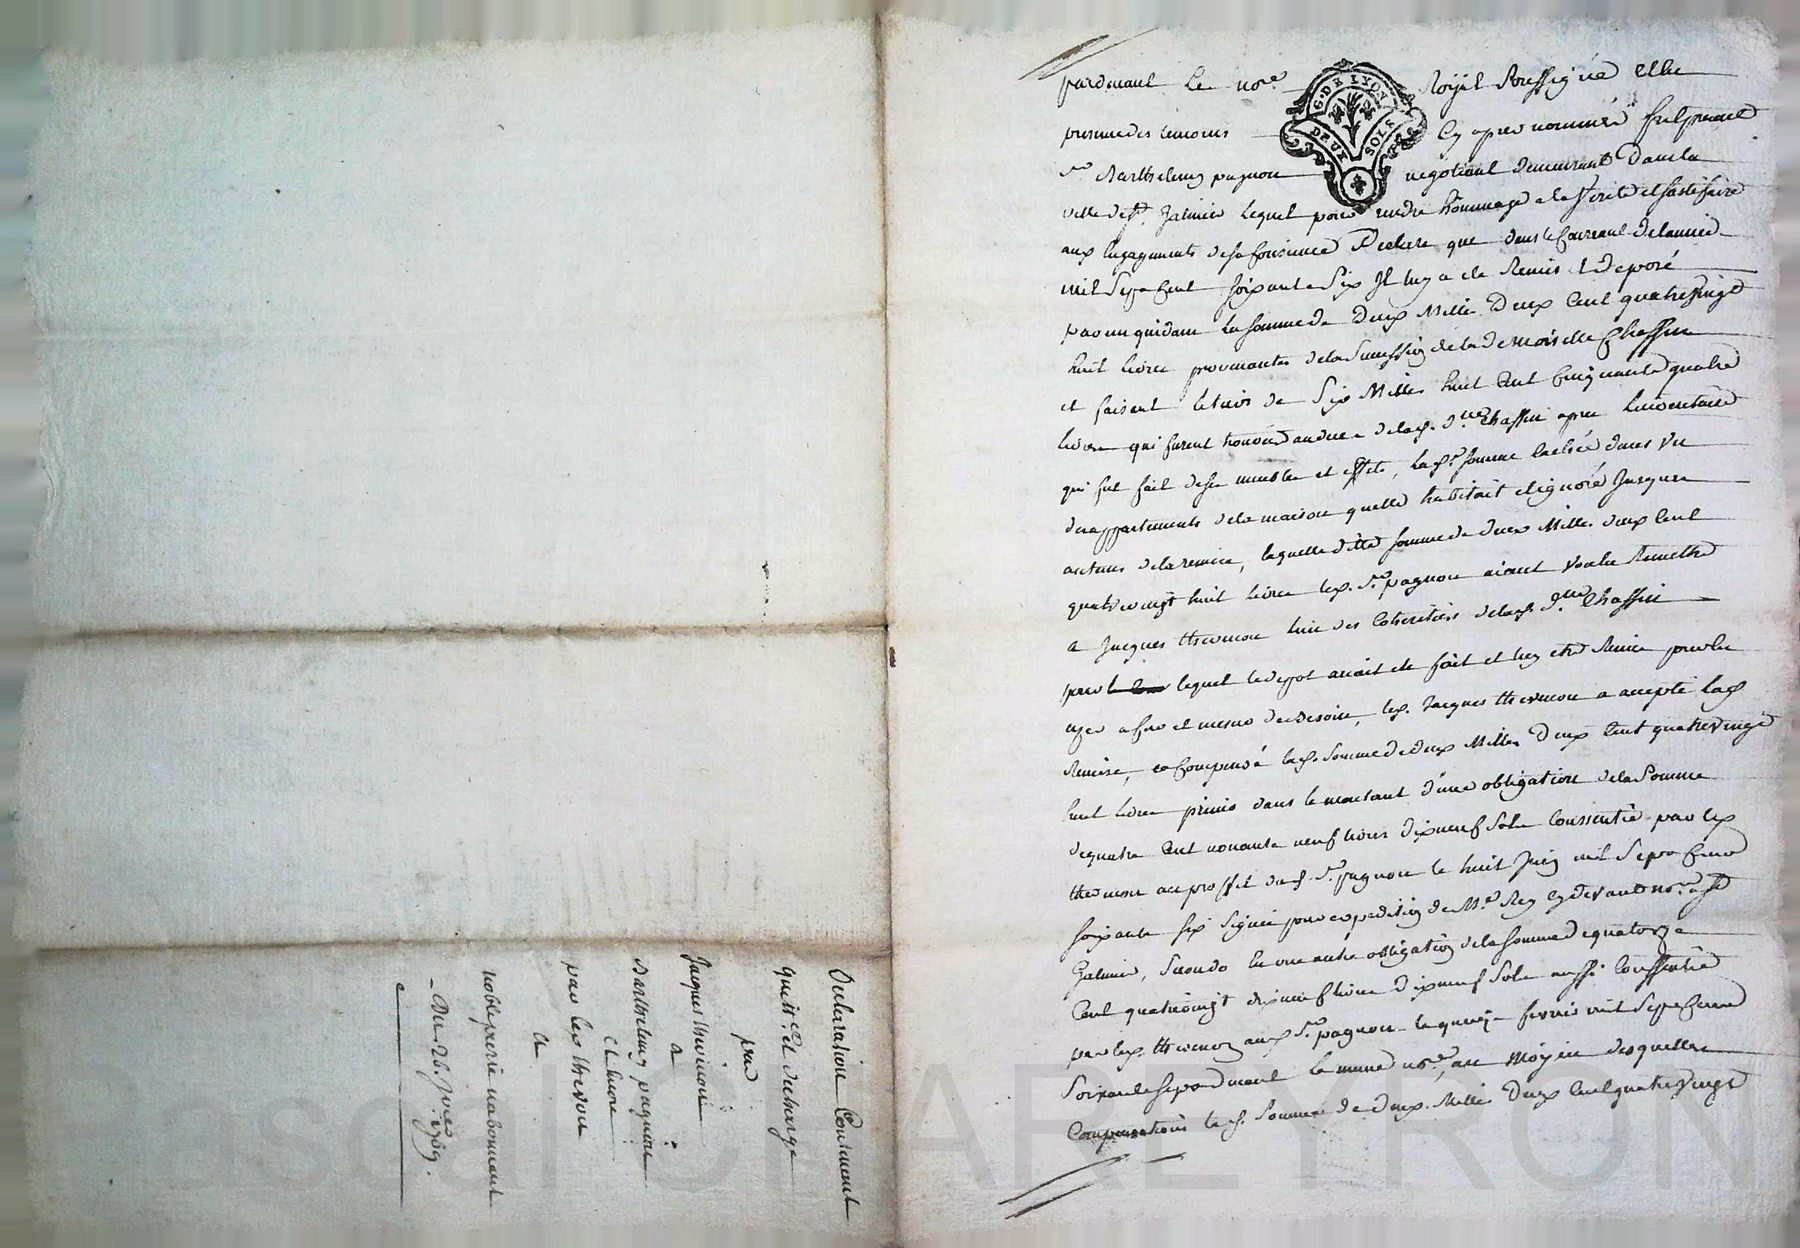 pardevant le no.re Royal soussigné et en
presence des temoins cy apres nommés fut present
G. DE LYON
DEUX SOLS
sr Barthelemy pagnon négotiant demeurant dans la
ville de st. Galmier lequel pour rendre hommage a la verité et satisfaire
aux engagements de sa conscience Declare que dans le courant de lannée
mil sept cent soixante six Il luy a eté Remis et déposé
par un quidam la somme de Deux Mille Deux Cent quatrevingt
huit livres provenantes de la succession de la demoiselle Chassin
et faisant le tiers de Six Mille huit Cent Cinquante quatre
livres qui furent trouvé de la d. d.lle Chassin apres linventaire
qui fut fait de ses meubles et effets, lad. somme dans un
des appartements de la maison quelle habitait et ignoré Jusques
au tems de la remise, laquelle ditte somme de deux Mille deux Cent
quatrevingt huit livres led. Sr. pagnon aiant voulu Remettre
a Jacques thevenon lun des Coheritiers de lad. d.lle Chassin
pour lequel le depot avait eté fait et luy etre Remis pour
au fur et mesure de besoin, led. Jacques thevenon a accepté lad.
Remise, et Compensé lad. somme de deux Mille Deux Cent quatrevingt
huit livres primo dans le montant d'une obligation de la somme
de quatre Cent nonante neuf livres dixneuf sols Consentie par led.
thevenon au proffit dud. Sr. pagnon le huit Juin mil Sept Cent
soixante six signée pour expedition de Me. Rey cy devant nore. a st
Galmier, Secundo En une autre obligation de la somme de quatorze
Cent quatrevingt dixneuf livres dixneuf sols aussi Conssentie
par led. thevenon aud. Sr. pagnon le fevrier mil Sept Cent
Soixante sept devant le meme nore, au Moyen desquelles
Compensations lad. Somme de deux Mille Deux Cent quatrevingt
Declaration Contenant
quitt.ce et decharge
par
Jaques thevenon
a
Barthelemy pagnon
et encore
par led. thevenon
a
noble pierre
Du 26. Juin 1769.
Pascal CHAREYRON